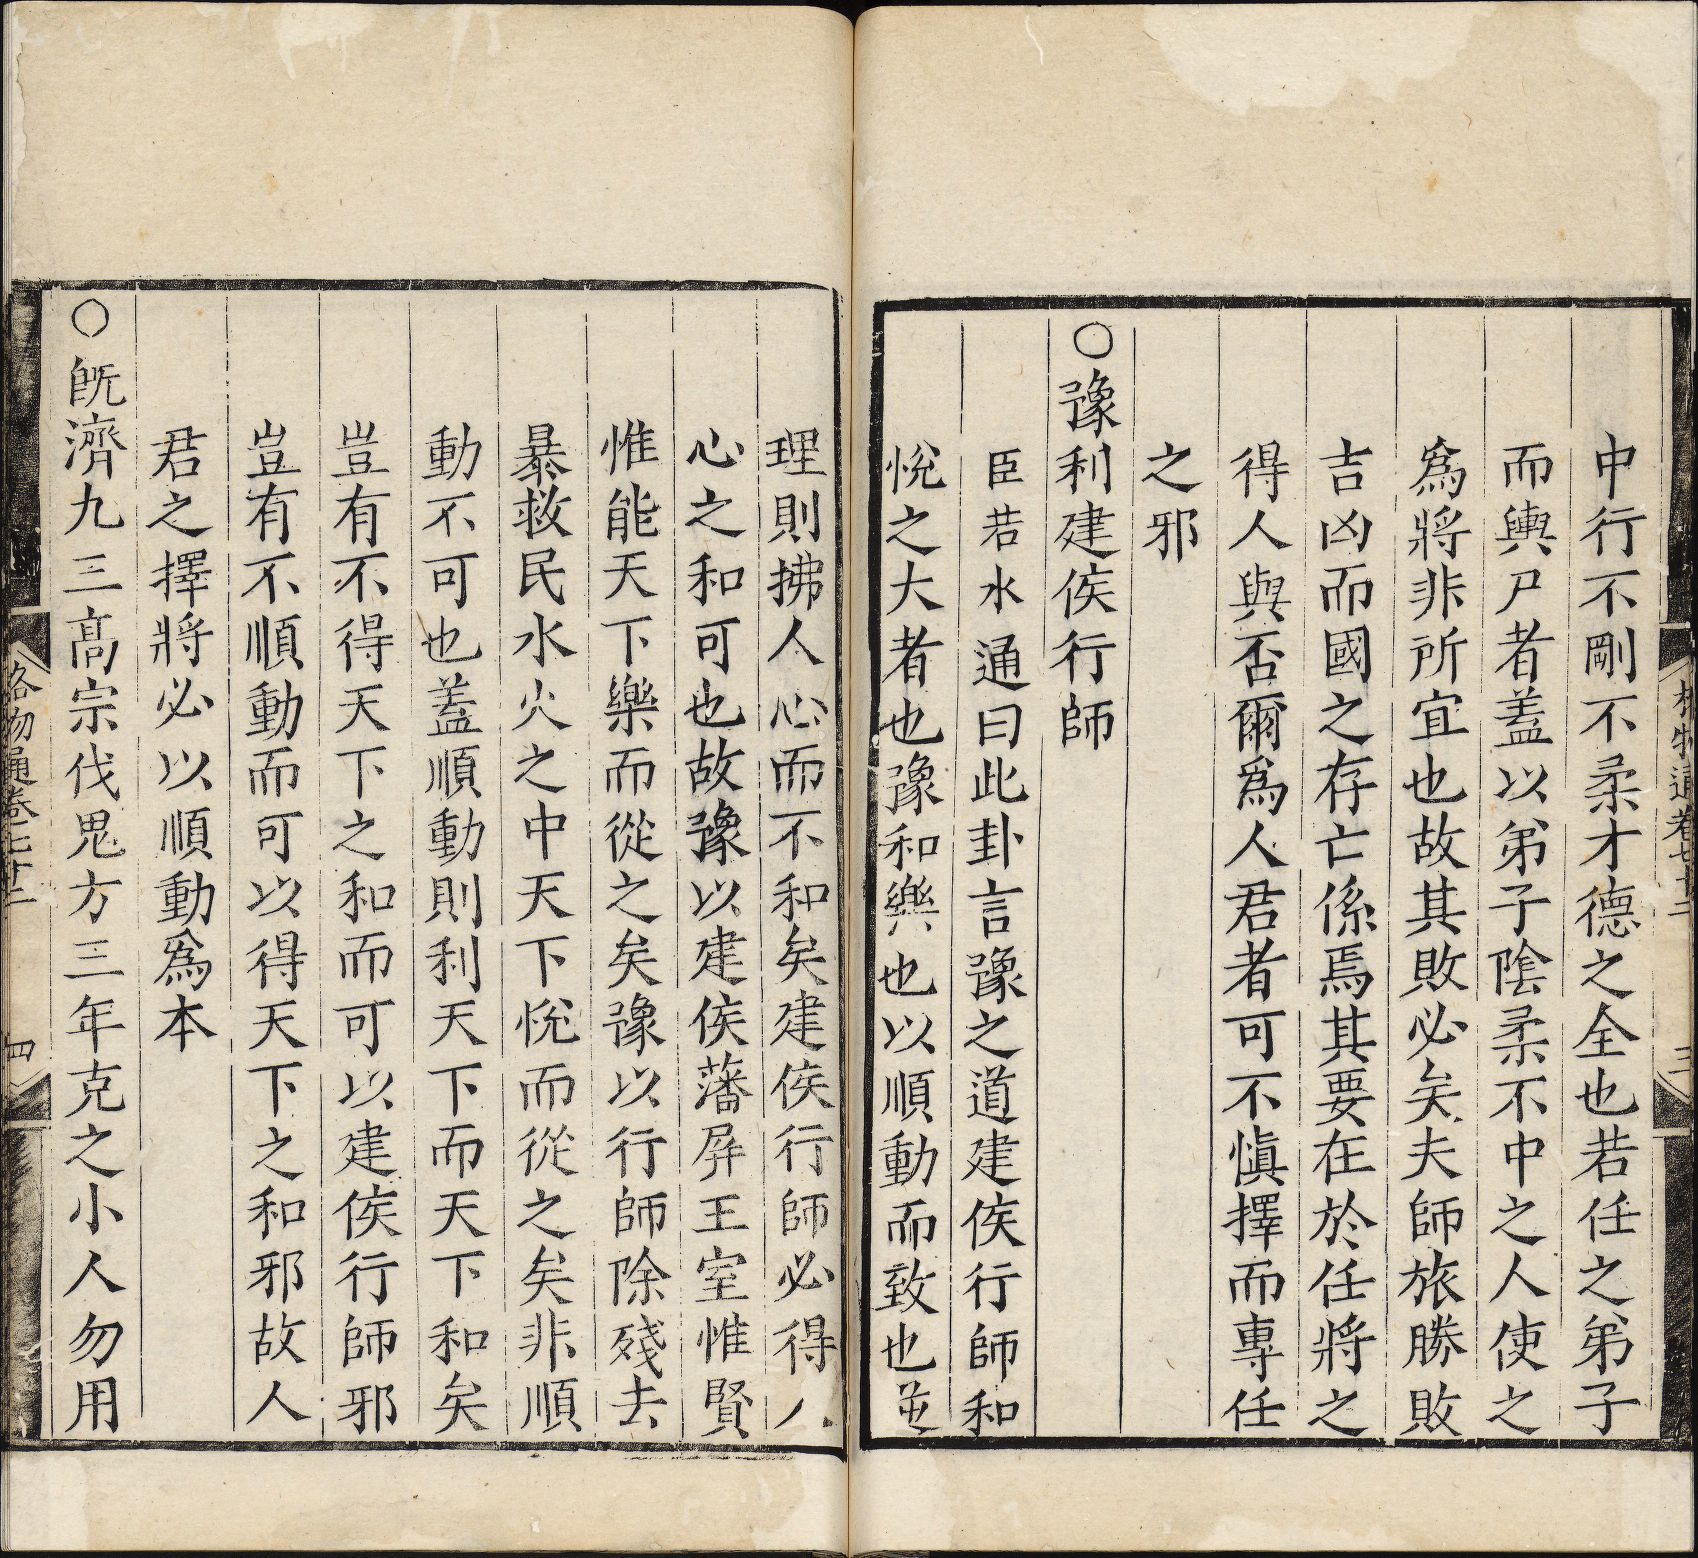 中行不剛不柔才德之全也若任之弟子
而輿尸者蓋以弟子陰柔不中之人使之
為將非所宜也故其敗必矣夫師旅勝敗
吉凶而國之存亡係焉其要在於任將之
得人與否爾為人君者可不慎擇而專任
之邪
○豫利建侯行師
臣若水通曰此卦言豫之道建侯行師和
悅之大者也豫和樂也以順動而致也並
理則拂人心而不和矣建侯行師必得人
心之和可也故豫以建侯藩屏王室惟賢
惟能天下樂而從之矣豫以行師除殘去
暴救民水火之中天下悅而從之矣非順
動不可也蓋順動則利天下而天下和矣
豈有不得天下之和而可以建侯行師邪
豈有不順動而可以得天下之和邪故人
君之擇將必以順動為本
○既濟九三高宗伐鬼方三年克之小人勿用
格物通卷七十二
四
格物通卷七十二
三